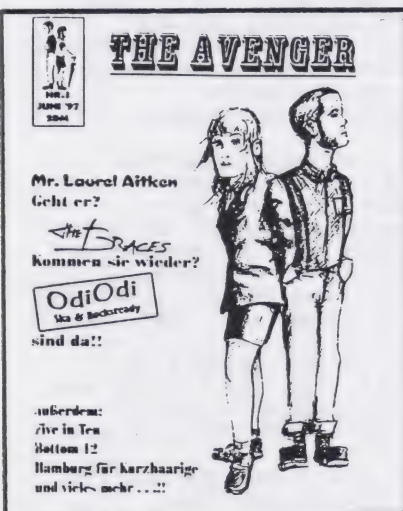 THE AVENGER
NR.1
JUNI '97
2DM
Mr. Laurel Aitken
Geht er?
THE BRACES
Kommen sie wieder?
OdiOdi
Ska & Rocksteady
sind da!!
außerdem:
Five in Ten
Bottom 12
Hamburg für Kurzhaarige
und vieles mehr . . .!!